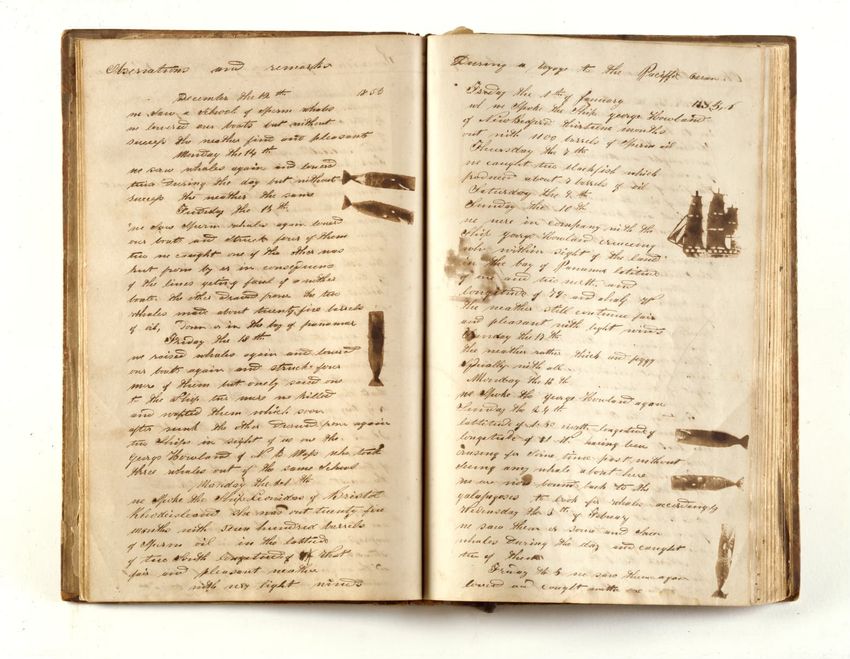 Observations and remarks
December the 12 th 1835
we saw a school of Sperm whales
we lowered our boats but without
success the weather fine and pleasant
Monday the 14 th
we saw whales again and lowerd
During the day but without
sucsess the weather the same
the 15 th
we saw Sperm whales again lowerd
our boats and Struck four of them
two we caught one of the other was
from by in consequens
of the lines geting fowl of a nother
boat the other Drawd from the two
whales made about twenty five barrels
of oil, Down in the bay of
Friday the 18 th
we raised whales again and lowerd
our boats again and struck four
more of them but onely saved one
to the Ship two more we killed
and them which soon
after sunk the other Drawd from again
two Ships in sight of us one the
george Howland of N B Mass who took
three whales out of the same School
Monday the th
we Spoke the Ship Leonidas of Bristol
Rhodisleand she was out twenty five
months with hundred barrels
of Sperm oil in the latitude
of two South Longetude of that
fair and pleasant weather
with very light winds
During a Voyage to the Pacific Ocean
Friday the th of January 1836
we Spoke the Ship george Howland
of New Bedford thirteen months
out with 1100 barrels of Sperm oil
Thursday the 7 th
we caught two blackfish which
produced about 3 barrels of oil
Saturday the 9 th
Sunday the 10 th
we were in company with the
Ship george Howland cruecing
within sight of the land
in the bay of Panama latitude
of and two north and
longitude of 79 and a half W
the weather still continue fair
and pleasant with light winds
the th
the weather rather thick and foggy
Squally with all
Monday the 18 th
we Spoke the george Howland again
Sunday the 24 th
lattitude of north longetude of
longitude of W having been
crusing for Some time past without
seeing any whale about here
we are now bound back to the
galapagoses to look for whales accordingly
Wednesday the 3 th of Febuary
we saw them
whales During the day and caught
two of them
Friday the 5 we saw them again
lowerd and caught